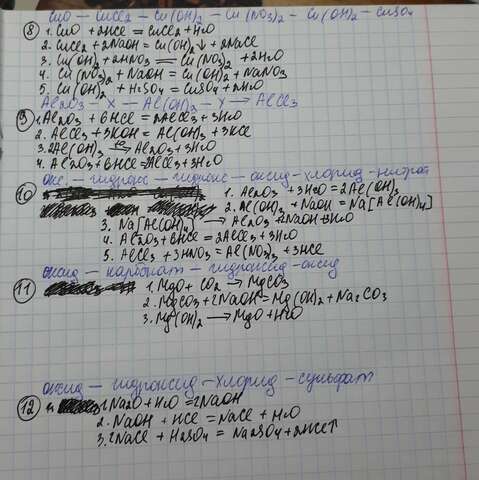 CuO — CuCl2 — Cu(OH)2 — Cu(NO3)2 — Cu(OH)2 — CuSO4
8 1. CuO + 2HCl = CuCl2 + H2O
2. CuCl2 + 2NaOH = Cu(OH)2↓ + 2NaCl
3. Cu(OH)2 + 2HNO3 = Cu(NO3)2 + 2H2O
4. Cu(NO3)2 + NaOH = Cu(OH)2 + NaNO3
5. Cu(OH)2 + H2SO4 = CuSO4 + 2H2O
Al2O3 — X — Al(OH)2 — Y → AlCl3
9 1. Al2O3 + 6HCl = 2AlCl3 + 3H2O
2. AlCl3 + 3KOH = Al(OH)3 + 3KCl
3. 2Al(OH)3 → Al2O3 + 3H2O
4. Al2O3 + 6HCl = 2AlCl3 + 3H2O
окс — гидрокс — гидрокс — оксид — хлорид — нитрат
10 1. Al2O3 + 3H2O = 2Al(OH)3
2. Al(OH)3 + NaOH = Na[Al(OH)4]
3. Na[Al(OH)4] → Al2O3 + 2NaOH + 3H2O
4. Al2O3 + 6HCl = 2AlCl3 + 3H2O
5. AlCl3 + 3HNO3 = Al(NO3)3 + 3HCl
оксид — карбонат — гидроксид — оксид
11 1. MgO + CO2 → MgCO3
2. MgCO3 + 2NaOH = Mg(OH)2 + Na2CO3
3. Mg(OH)2 → MgO + H2O
оксид — гидроксид — хлорид — сульфат
12 1. Na2O + H2O = 2NaOH
2. NaOH + HCl = NaCl + H2O
3. 2NaCl + H2SO4 = Na2SO4 + 2HCl↑